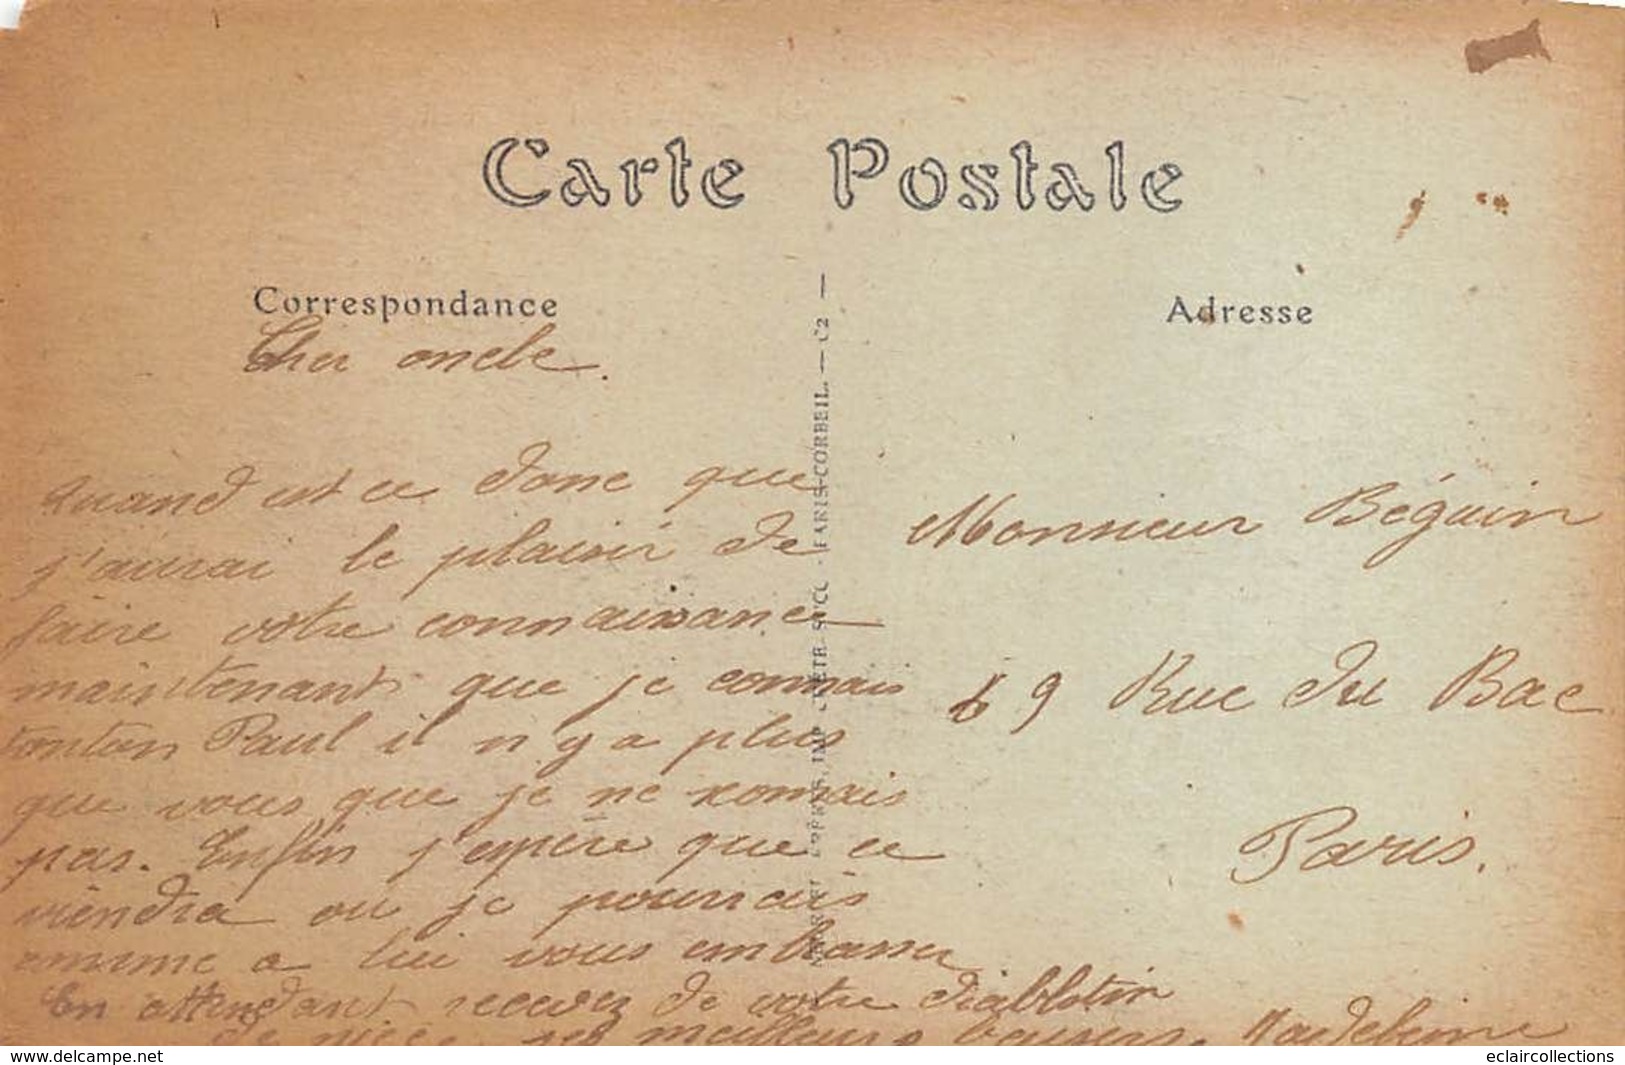 Carte Postale
Correspondance
Cher oncle.
Quand est ce donc que
j'aurai le plaisir de
faire votre connaissance
maintenant que je connais
tonton Paul il n'y a plus
que vous que je ne connais
pas. Enfin j'espère que ce
viendra ou je pourrais
comme a lui vous embrasser
En attendant recevez de votre diablotin
de nièce ses meilleurs baisers. Madeleine
PARIS-CORBEIL. — C2 —
Adresse
Monsieur Béguin
69 Rue du Bac
Paris.
www.delcampe.net
eclaircollections